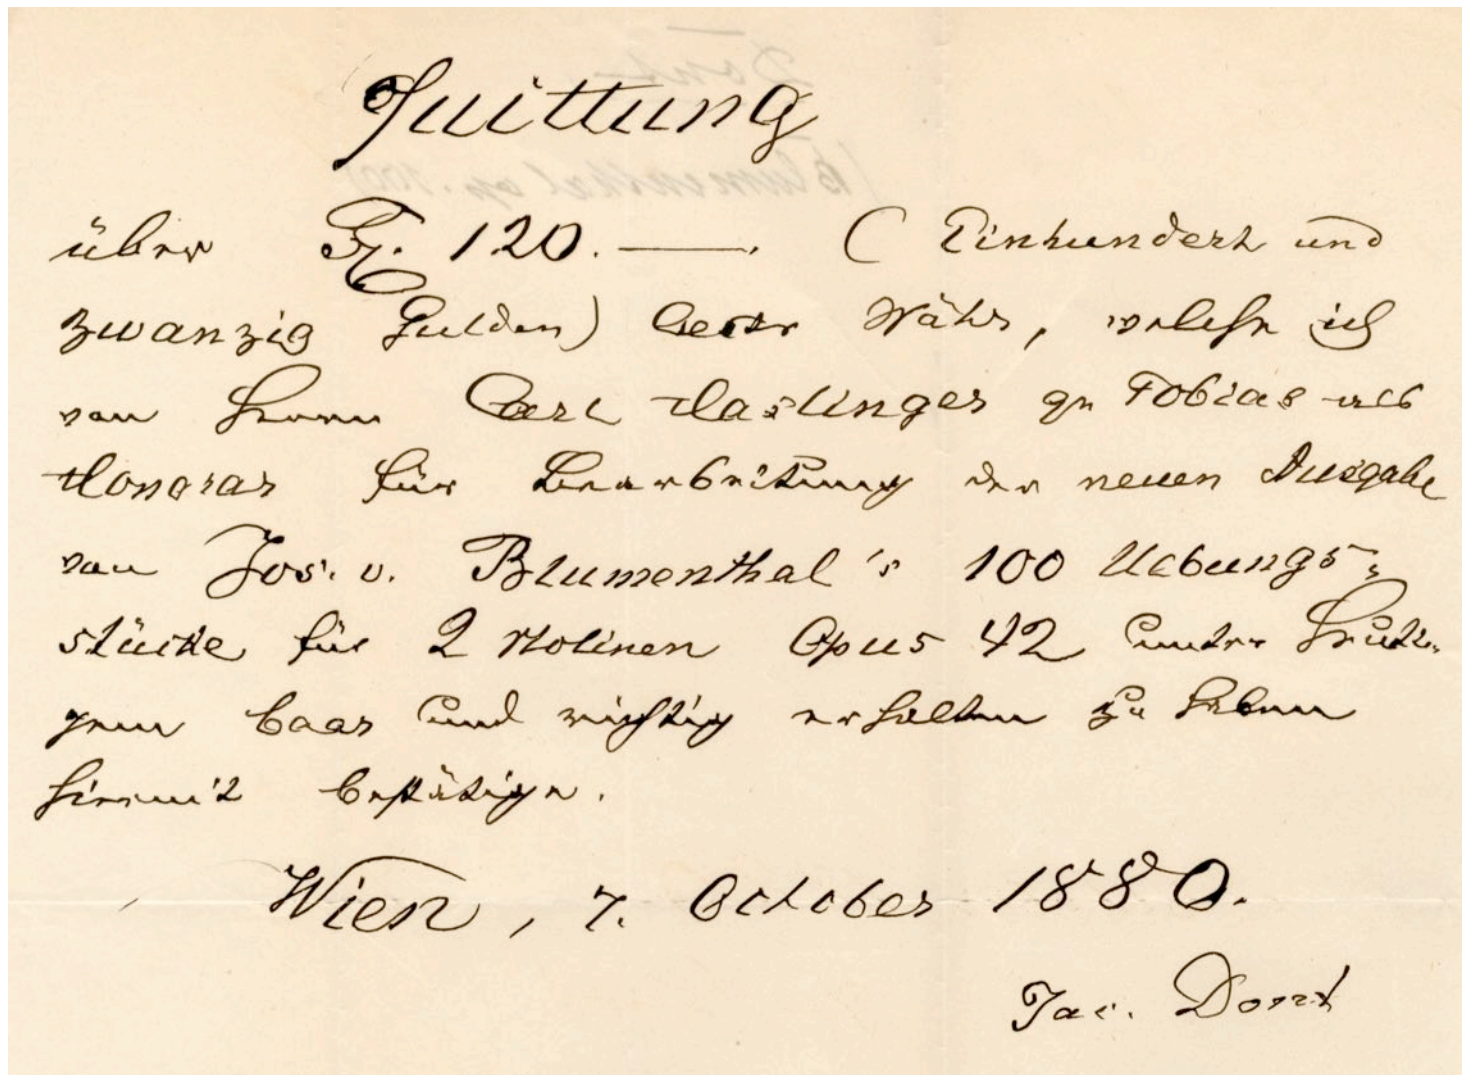 Quittung
über Fl. 120. —. (Einhundert und
zwanzig Gulden) oestr Währ, welche ich
von Herrn Carl Haslinger qu Tobias als
Honorar für Bearbeitung der neuen Ausgabe
von Jos. v. Blumenthal's 100 Uebungs-
stücke für 2 Violinen Opus 42 unter Heuti-
gem baar und richtig erhalten zu haben
hiermit bestätige.
Wien, 7. October 1880.
Jac. Dont